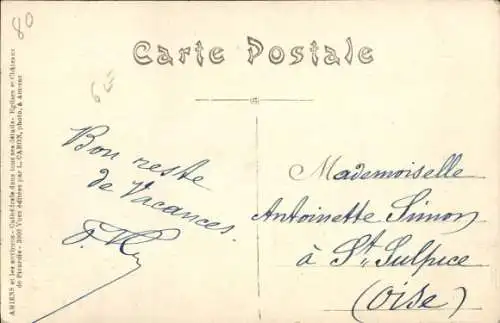 80
Carte Postale
6
AMIENS et les environs - Cathédrale dans tous ses détails - Eglises et Châteaux
de Picardie - 3000 Vues éditées par L. CARON, photo. à Amiens
Bon reste
de Vacances.
Mademoiselle
Antoinette Simon
à St Sulpice
(Oise)